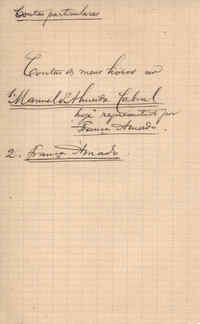 Contas particulares
Contas de meus livros com
1º Manuel d'Almeida Cabral
hoje representado por
França Amado.
2. França Amado.